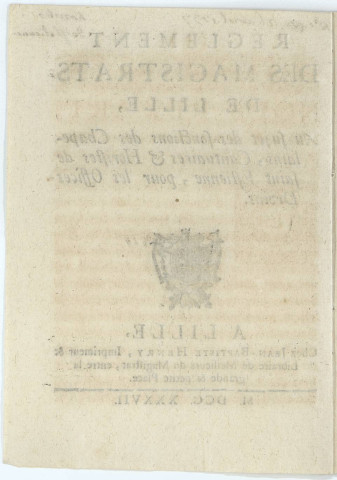 REGLEMENT
DES MAGISTRATS
DE LILLE,
Au sujet des fonctions des Chape-
lains, Cantuaires & Horistes de
saint Estienne, pour les Offices
Divins.
A LILLE,
Chez JEAN-BAPTISTE HENRY, Imprimeur &
Libraire de Messieurs du Magistrat, entre la
grande & petite Place.
M. DCC. XXXVII.